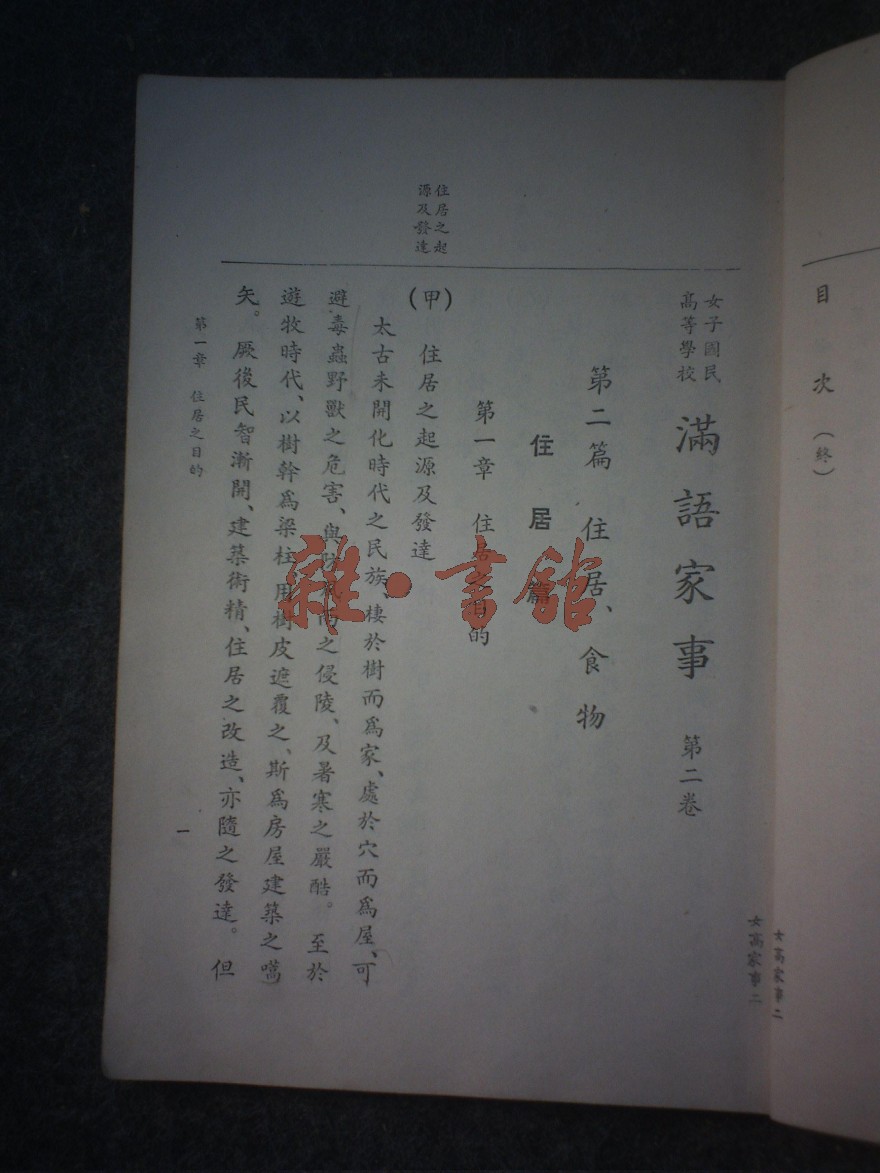 目次(終)
女高家事二
女高家事二
女子國民
高等學校
滿語家事 第二卷
第二篇 住居、食物
住居篇
第一章 住居之目的
住居之起
源及發達
(甲) 住居之起源及發達
太古未開化時代之民族、棲於樹而爲家、處於穴而爲屋、可
避毒蟲野獸之危害、與防風雨之侵陵、及暑寒之嚴酷。 至於
遊牧時代、以樹幹爲梁柱、用樹皮遮覆之、斯爲房屋建築之嚆
矢。 厥後民智漸開、建築術精、住居之改造、亦隨之發達。 但
第一章 住居之目的
一
雜·書舘